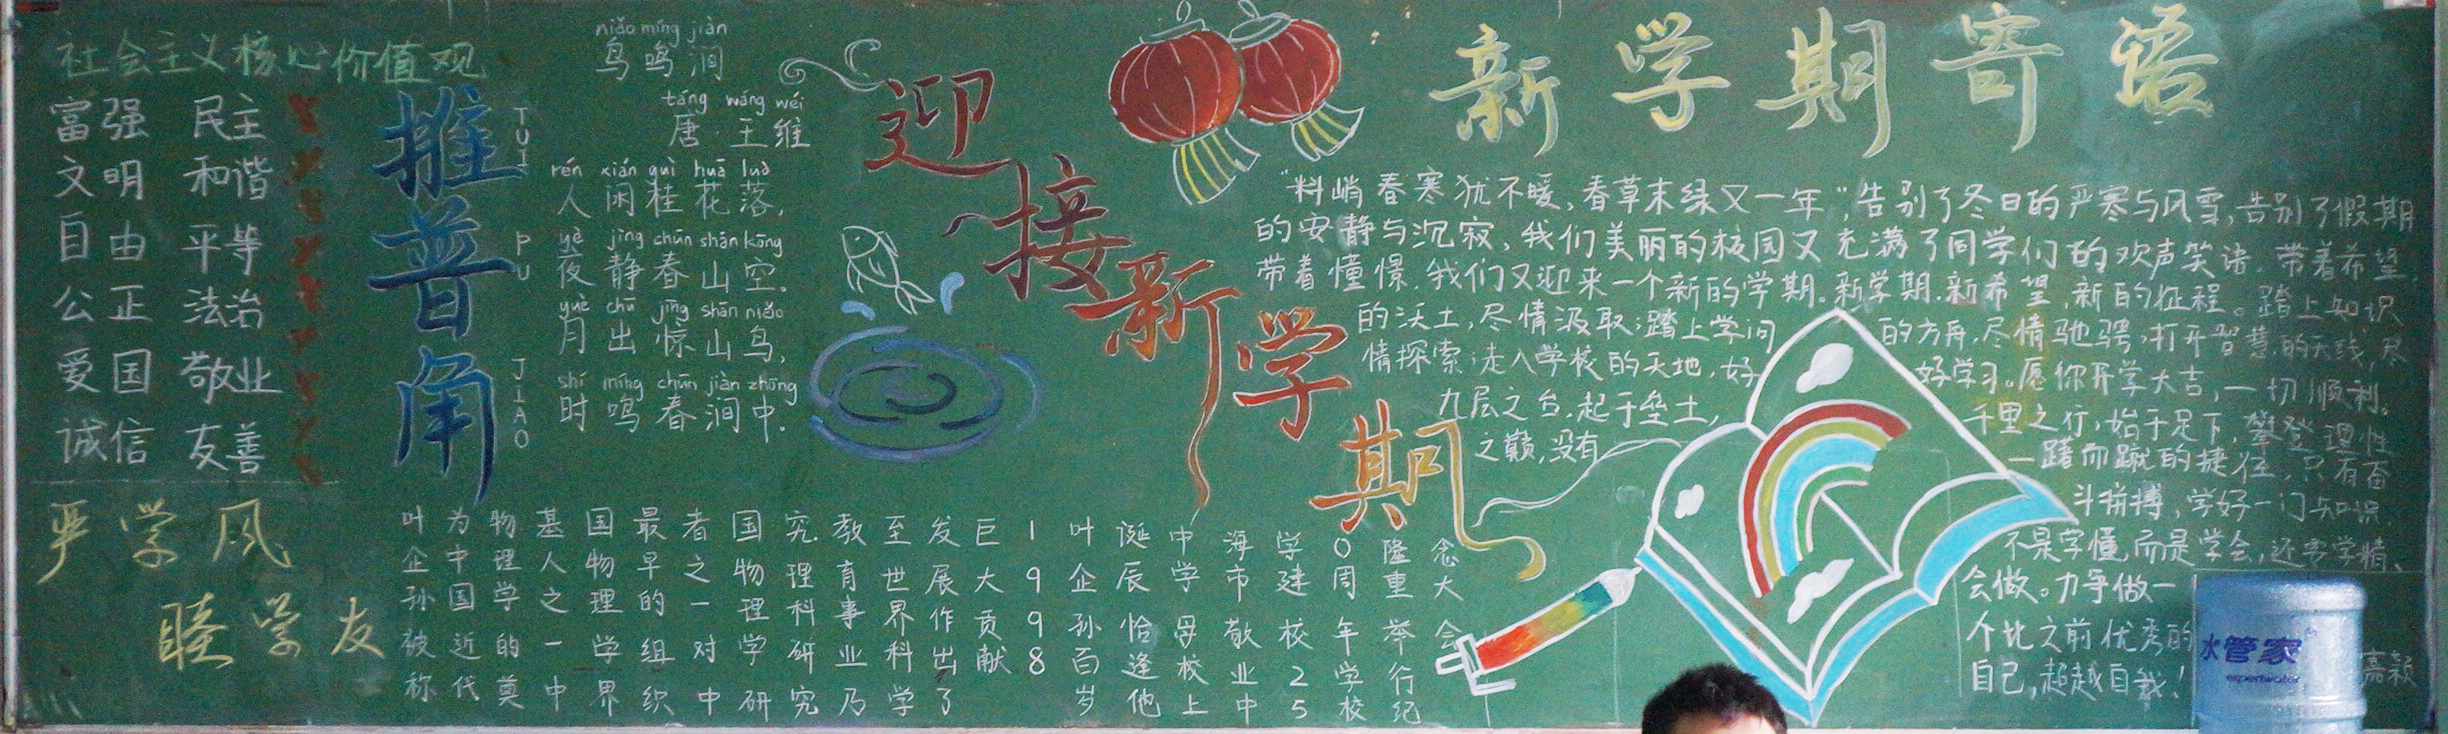 社会主义核心价值观
富强 民主
文明 和谐
自由 平等
公正 法治
爱国 敬业
诚信 友善
严学风
睦学友
推普角
TUI PU JIAO
niǎo míng jiàn
鸟鸣涧
táng wáng wéi
唐·王维
rén xián guì huā luò
人闲桂花落,
yè jìng chūn shān kōng
夜静春山空.
yuè chū jīng shān niǎo
月出惊山鸟,
shí míng chūn jiàn zhōng
时鸣春涧中.
叶企孙被称
为中国近代
物理学的奠
基人之一中
国物理学界
最早的组织
者之一对中
国物理学研
究理科研究
教育事业乃
至世界科学
发展作出了
巨大贡献
1998
叶企孙百岁
诞辰恰逢他
中学母校上
海市敬业中
学建校25
0周年学校
隆重举行纪
念大会
迎接新学期
新学期寄语
"料峭春寒犹不暖,春草未绿又一年",告别了冬日的严寒与风雪,告别了假期
的安静与沉寂,我们美丽的校园又充满了同学们的欢声笑语.带着希望,
带着憧憬.我们又迎来一个新的学期.新学期.新希望,新的征程。踏上知识
的沃土,尽情汲取;踏上学问的方舟,尽情驰骋;打开智慧的天线,尽
情探索;走入学校的天地,好好学习。愿你开学大吉,一切顺利。
九层之台.起于垒土,千里之行,始于足下,攀登理性
之巅,没有一蹴而蹴的捷径,只有奋
斗拼搏,学好一门知识,
不是字懂,而是学会,还要学精、
会做。力争做一
个比之前优秀的
自己,超越自我!
嘉颖
水管家
expertwater